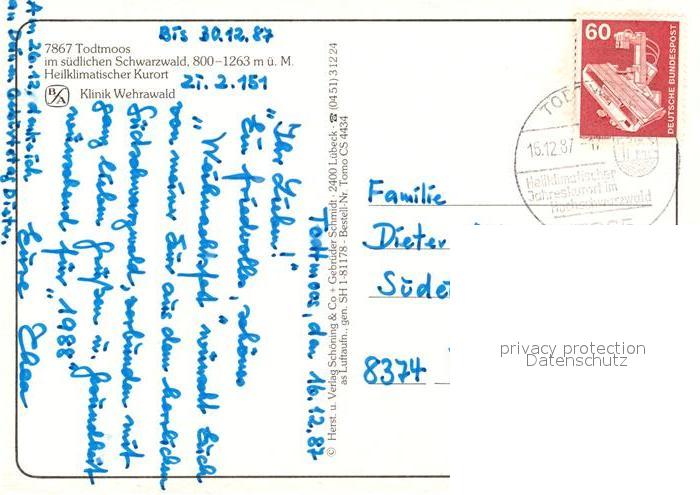 Bis 30.12.87
7867 Todtmoos
im südlichen Schwarzwald, 800–1263 m ü. M.
Heilklimatischer Kurort
B/A Klinik Wehrawald
Zi. 2.151
Todtmoos, den 16.12.87
"Ihr Lieben!"
Ein friedvolles, schönes
"Weihnachtsfest" wünscht Euch
von meiner Kur aus dem herrlichen
Südschwarzwald, verbunden mit
ganz lieben Grüßen u. Gesundheit
wünschend für "1988"
Eure Thea
Am 26.12. denke ich
an Deinen Geburtstag Dieter.
© Herst. u. Verlag Schöning & Co + Gebrüder Schmidt · 2400 Lübeck · ☎ (04 51) 3 12 24
as Luftaufn., gen. SH 1-81178 - Bestell-Nr. Tomo CS 4434
60
DEUTSCHE BUNDESPOST
TODT
16.12.87
Heilklimatischer
Jahreskurort im
Hochschwarzwald
Familie
Dieter
Süde
8374
privacy protection
Datenschutz